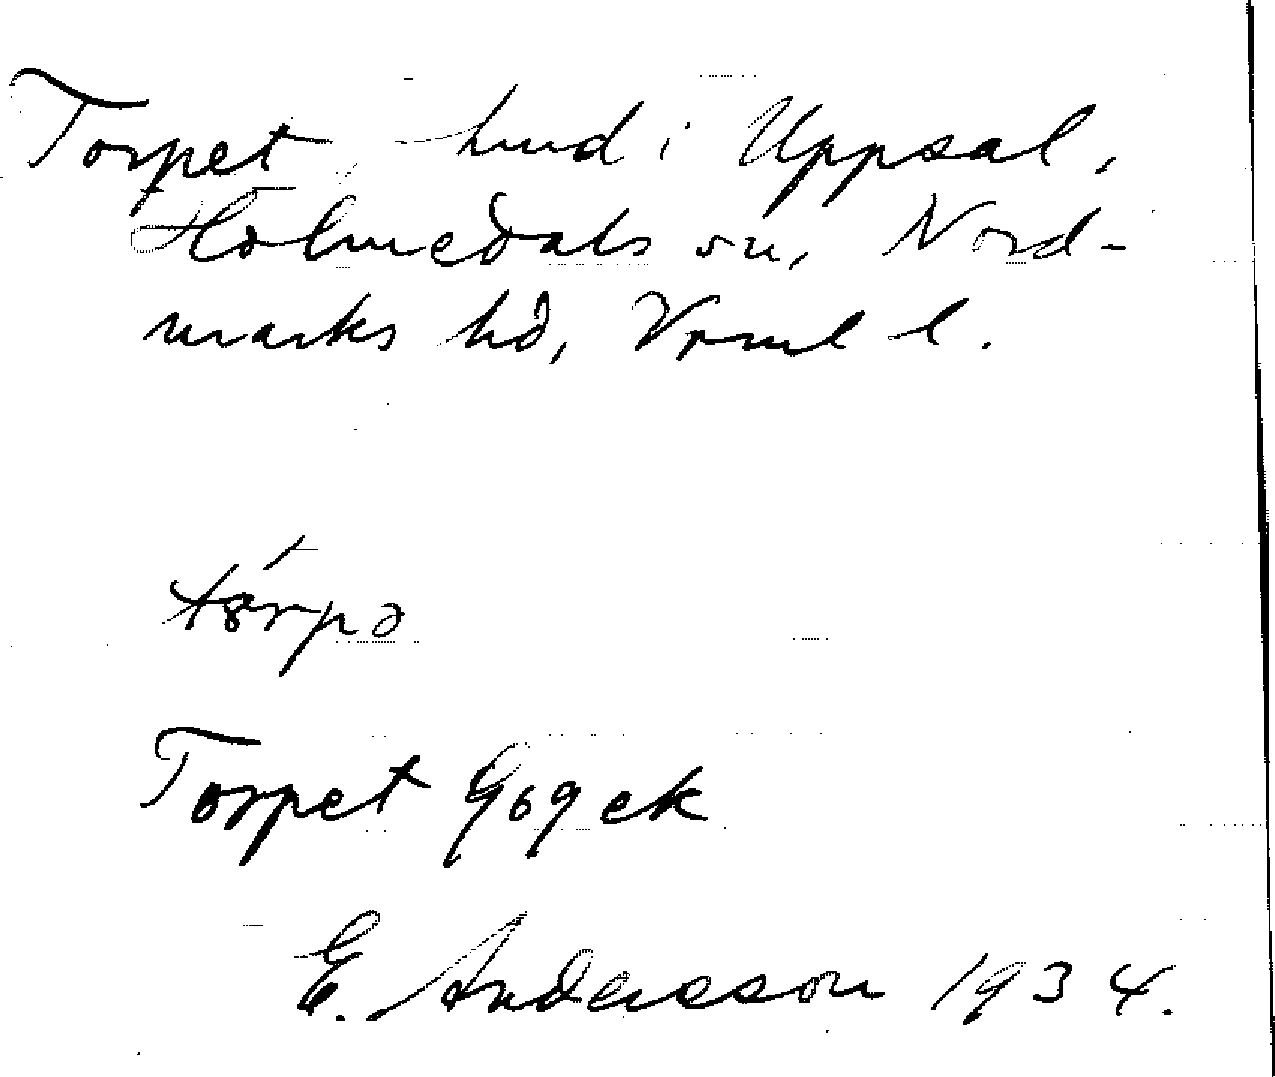 Torpet, hmd i Uppsal,
Holmedals sn, Nord-
marks hd, Vrml l.
tǿrpə
Torpet Gogek
E. Andersson 1934.